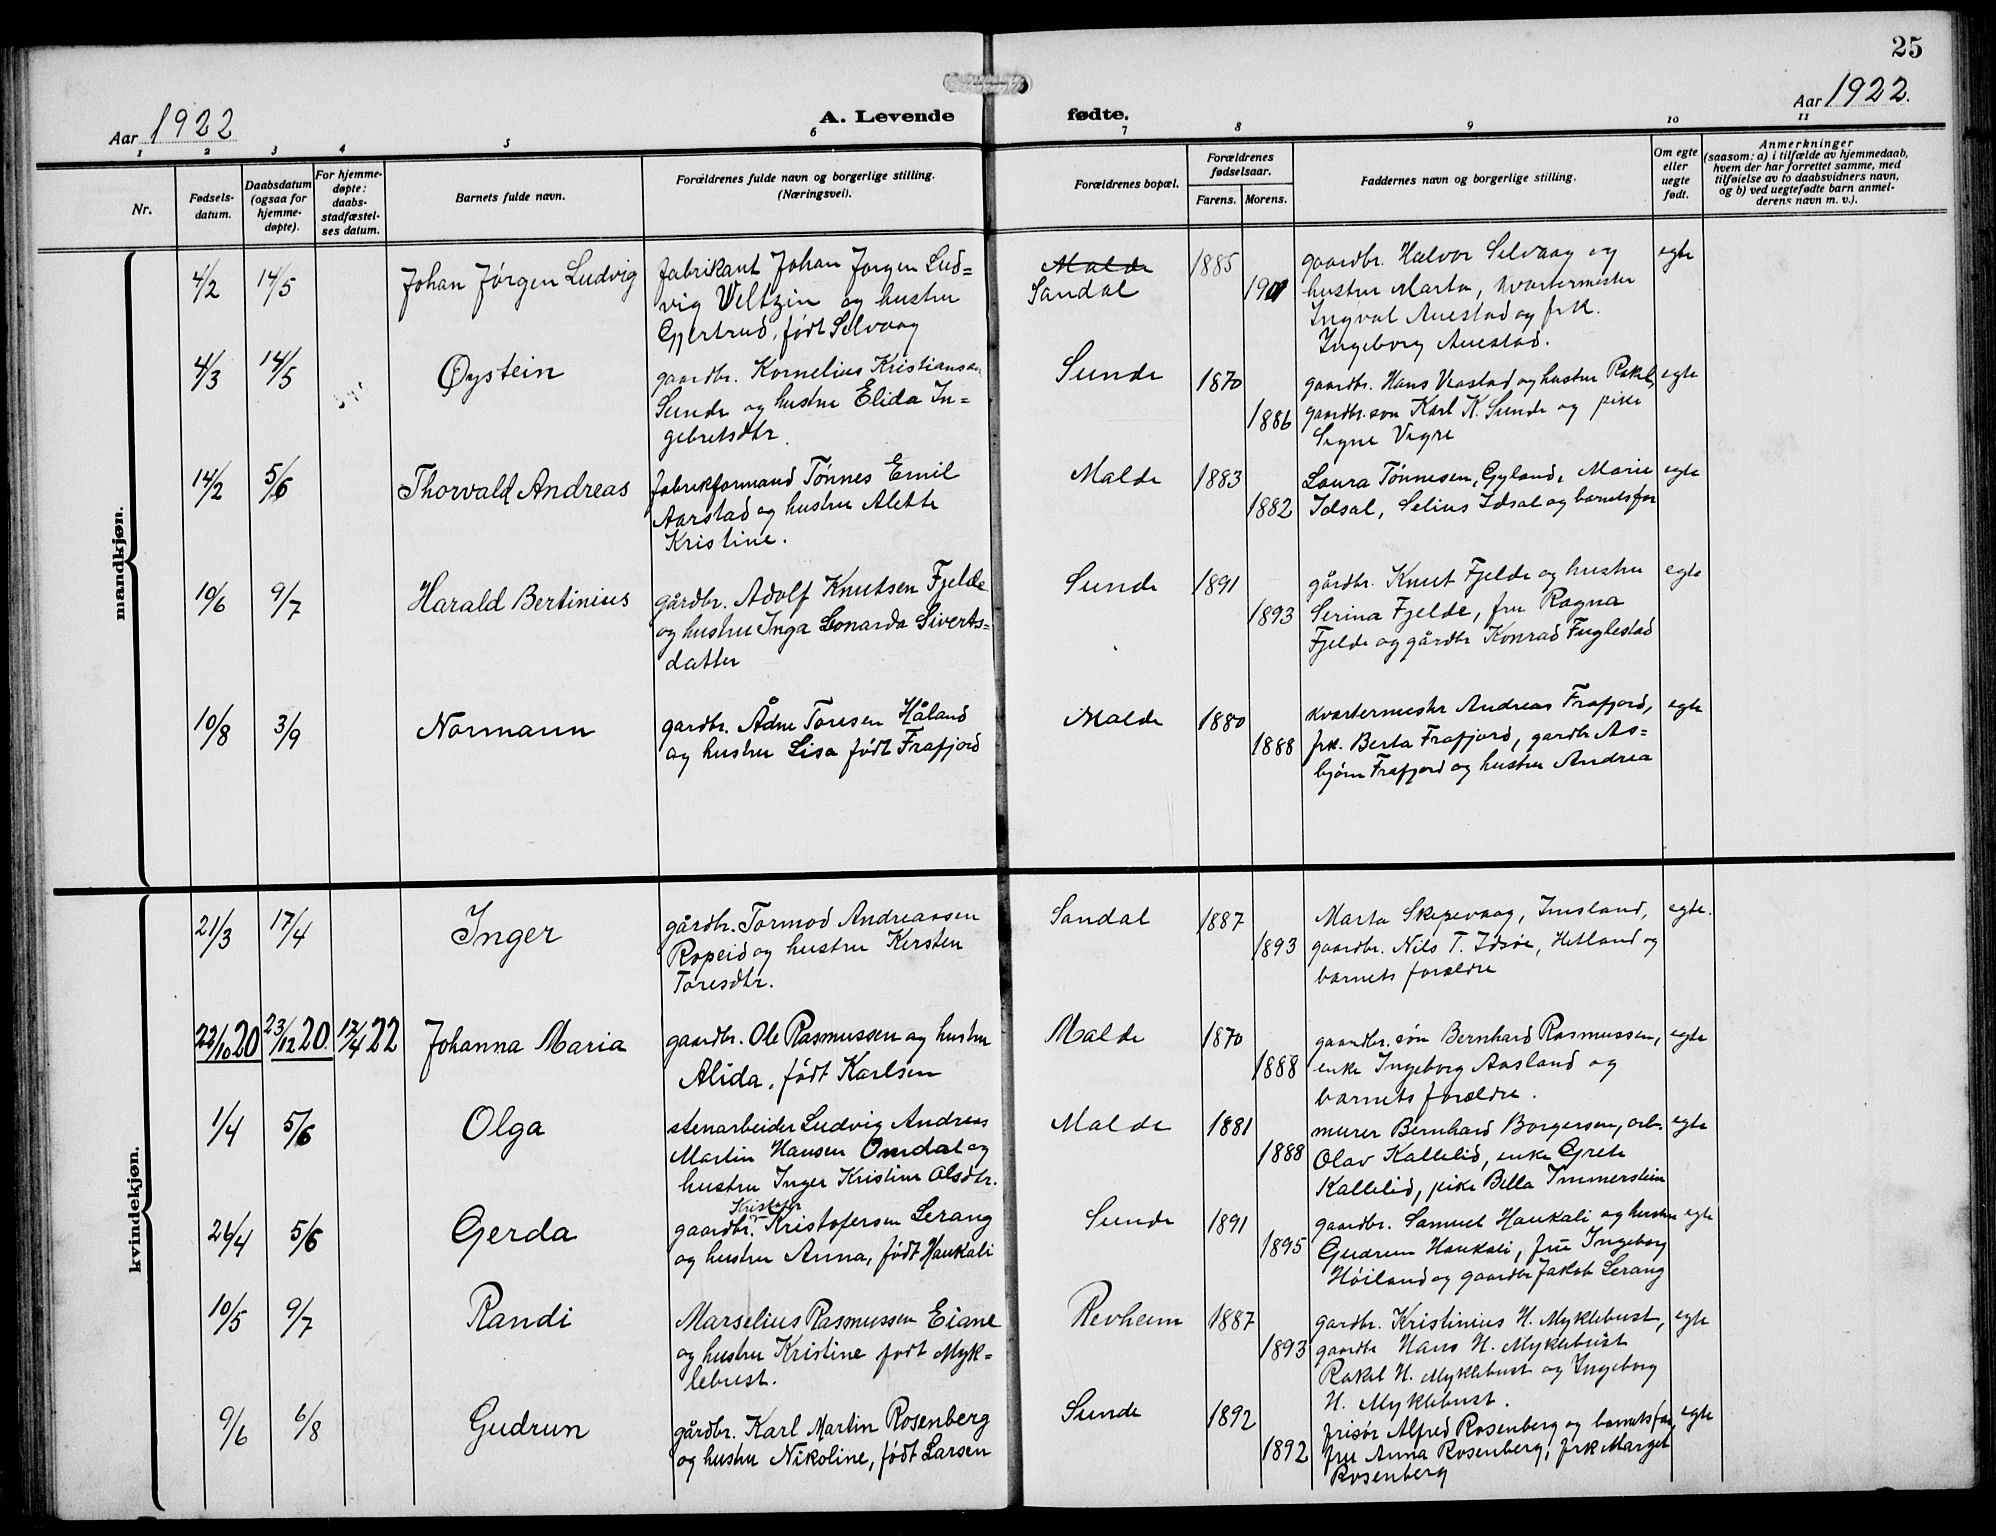 25
Aar 1922
A. Levende fødte.
Aar 1922.
1 2 3 4 5 6 7 8 9 10 11
Nr.
Fødsels-
datum.
Daabsdatum
(ogsaa for
hjemme-
døpte).
For hjemme-
døpte:
daabs-
stadfæstel-
ses datum.
Barnets fulde navn.
Forældrenes fulde navn og borgerlige stilling.
(Næringsvei).
Forældrenes bopæl.
Forældrenes
fødselsaar.
Farens. Morens.
Faddernes navn og borgerlige stilling.
Om egte
eller
uegte
født.
Anmerkninger
(saasom: a) i tilfælde av hjemmedaab,
hvem der har forrettet samme, med
tilføielse av to daabsvidners navn,
og b) ved uegtefødte barn anmel-
derens navn m. v.).
mandkjøn.
4/2 14/5 Johan Jørgen Ludvig
fabrikant Johan Jørgen Lud=
vig Veltzin og hustru
Gjertrud, født Selvaag
Malde
Sandal
1885
1901
gaardbr. Halvor Selvaag og
hustru Marta, kvartermester
Ingval Auestad og frk.
Ingeborg Auestad.
egte
4/3 14/5 Øystein
gaardbr. Kornelius Kristiansen
Sunde og hustru Elida In=
gebretsdtr.
Sunde
1870
1886
gaardbr. Hans Vrastad og hustru Rakel,
gaardbr.søn Karl K. Sunde og pike
Signe Vigre
egte
14/2 5/6 Thorvald Andreas
fabrikformand Tønnes Emil
Aarstad og hustru Alette
Kristine.
Malde
1883
1882
Laura Tønnesen, Gyland, Marie
Idsal, Selius Idsal og barnets far
egte
10/6 9/7 Harald Bertinius
gårdbr. Adolf Knutsen Fjelde
og hustru Inga Lonarda Siverts=
datter
Sunde
1891
1893
gårdbr. Knut Fjelde og hustru
Serina Fjelde, fru Ragna
Fjelde og gårdbr Konrad Fuglestad
egte
10/8 3/9 Normann
gardbr. Ådne Toresen Håland
og hustru Lisa født Frafjord
Malde
1880
1888
kvartermester Andreas Frafjord,
frk. Berta Frafjord, gardbr As=
bjørn Frafjord og hustru Andrea
egte
kvindekjøn.
21/3 17/4 Inger
gårdbr. Tormod Andreassen
Ropeid og hustru Kersten
Toresdtr.
Sandal
1887
1893
Marta Skipevaag, Imsland,
gaardbr. Nils T. Idsøe, Hetland og
barnets forældre
egte.
22/10 20 23/12 20. 17/4 22 Johanna Maria
gaardbr. Ole Rasmussen og hustru
Alida, født Karlsen
Malde
1870
1888
gaardbr.søn Bernhard Rasmussen,
enke Ingeborg Aasland og
barnets forældre.
egte
1/4 5/6 Olga
stenarbeider Ludvig Andreas
Martin Hansen Omdal og
hustru Inger Kristine Olsdtr.
Malde
1881
1888
murer Bernhard Borgersen, arb.
Olav Kallelid, enke Grete
Kallelid, pike Bella Immerstein
egte
26/4 5/6 Gerda
Kristofer
gaardbr. Kristofersen Lerang
og hustru Anna, født Haukali
Sunde
1891
1895
gaardbr. Samuel Haukali og hustru
Gudrun Haukali, frue Ingeborg
Høiland og gaardbr Jakob Lerang
egte
10/5 9/7 Randi
Marselius Rasmussen Eiane
og hustru Kristine født Myk=
lebust.
Revheim
1887
1893
gardbr. Kristinius H. Myklebust,
gaardbr Hans H. Myklebust
Rakel H. Myklebust og Ingeborg
H. Myklebust.
egte
9/6 6/8 Gudrun
gårdbr. Karl Martin Rosenberg
og hustru Nikoline, født Larsen
Sunde
1892
1892
frisør Alfred Rosenberg og barnets far,
fru Anna Rosenberg, frk Marget
Rosenberg
egte